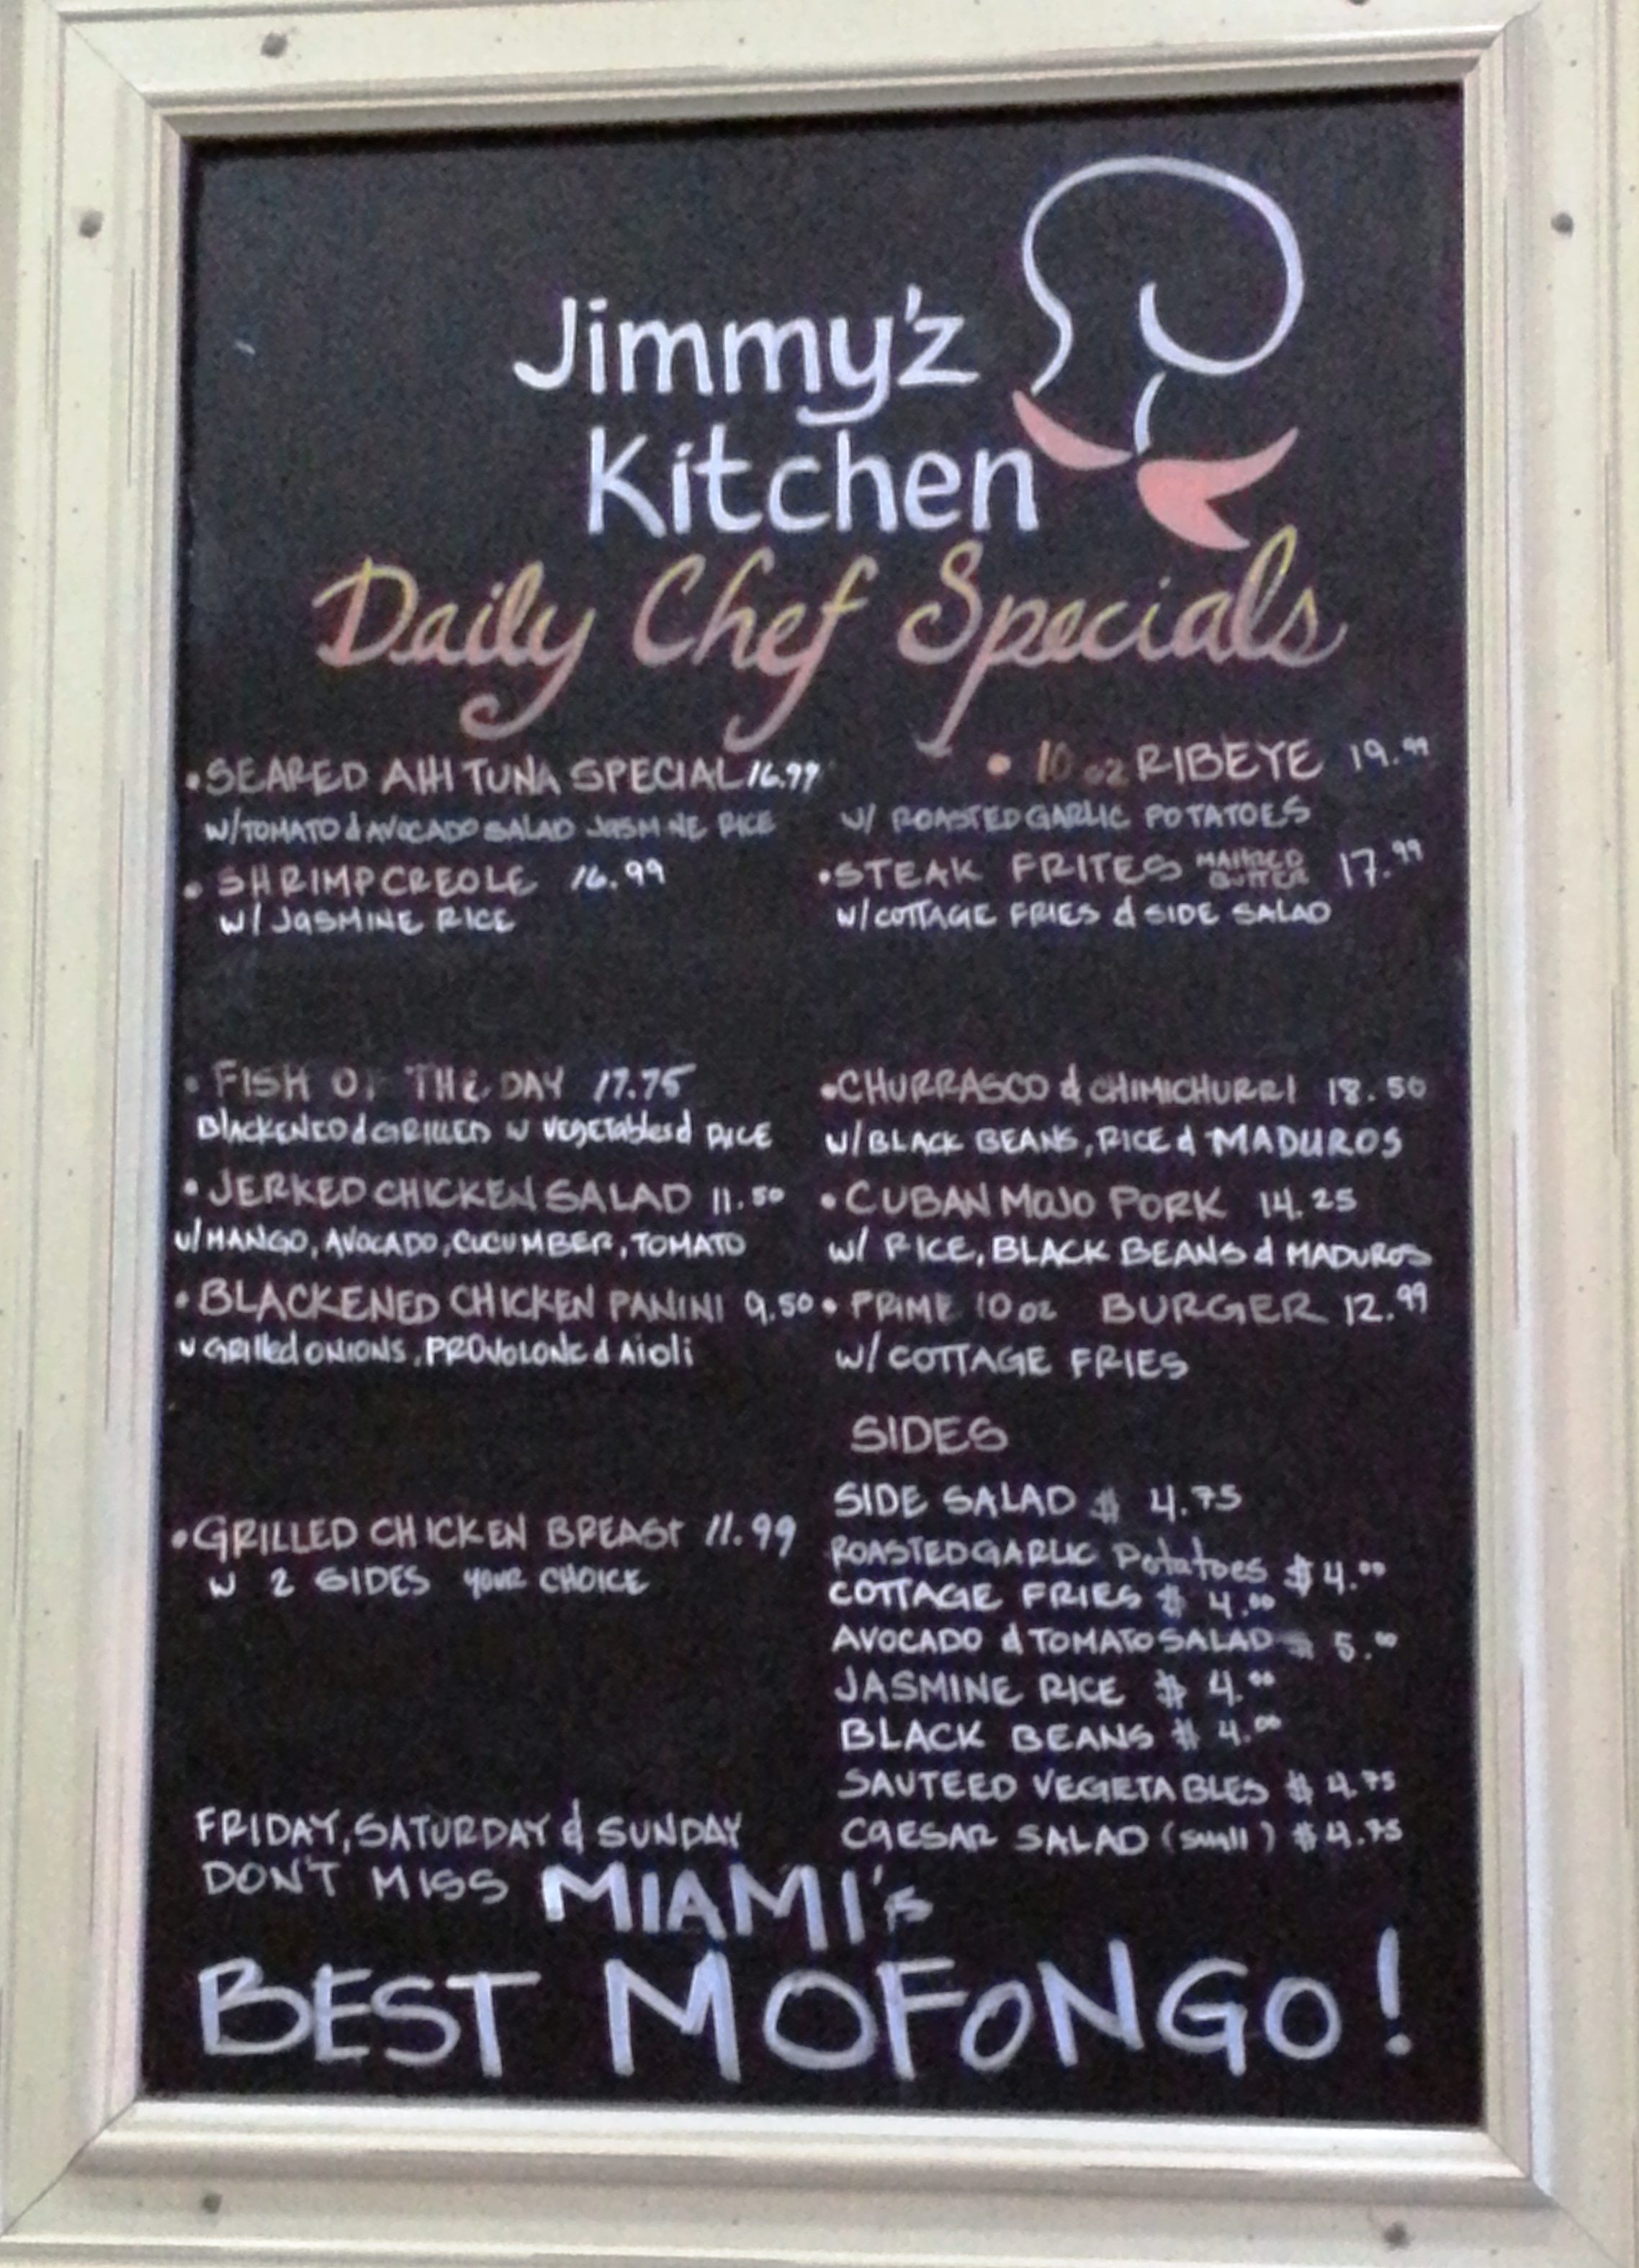 Jimmy'z
Kitchen
Daily Chef Specials
• SEARED AHI TUNA SPECIAL 16.99
W/TOMATO & AVOCADO SALAD JASMINE RICE
• SHRIMP CREOLE 16.99
W/ JASMINE RICE
• FISH OF THE DAY 17.75
BLACKENED & GRILLED W VEGETABLES & RICE
• JERKED CHICKEN SALAD 11.50
W/MANGO, AVOCADO, CUCUMBER, TOMATO
• BLACKENED CHICKEN PANINI 9.50
W GRILLED ONIONS, PROVOLONE & AIOLI
• GRILLED CHICKEN BREAST 11.99
W 2 SIDES YOUR CHOICE
• 10 oz RIBEYE 19.99
W/ ROASTED GARLIC POTATOES
• STEAK FRITES BUTTER 17.99
W/COTTAGE FRIES & SIDE SALAD
• CHURRASCO & CHIMICHURRI 18.50
W/BLACK BEANS, RICE & MADUROS
• CUBAN MOJO PORK 14.25
W/ RICE, BLACK BEANS & MADUROS
• PRIME 10 oz BURGER 12.99
W/ COTTAGE FRIES
SIDES
SIDE SALAD $ 4.75
ROASTED GARLIC Potatoes $ 4.00
COTTAGE FRIES $ 4.00
AVOCADO & TOMATO SALAD $ 5.00
JASMINE RICE $ 4.00
BLACK BEANS $ 4.00
SAUTEED VEGETABLES $ 4.75
CAESAR SALAD (small) $ 4.75
FRIDAY, SATURDAY & SUNDAY
DON'T MISS MIAMI's
BEST MOFONGO!